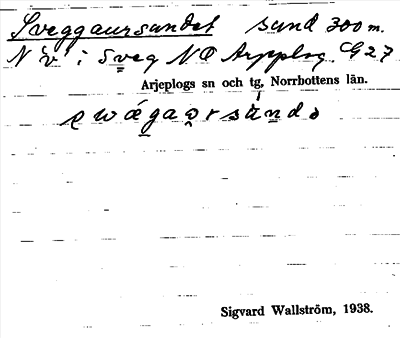 Sveggaursandet sund 300 m.
N v i Sveg NO Arjeplog. G 27
Arjeplogs sn och tg, Norrbottens län.
Sigvard Wallström, 1938.